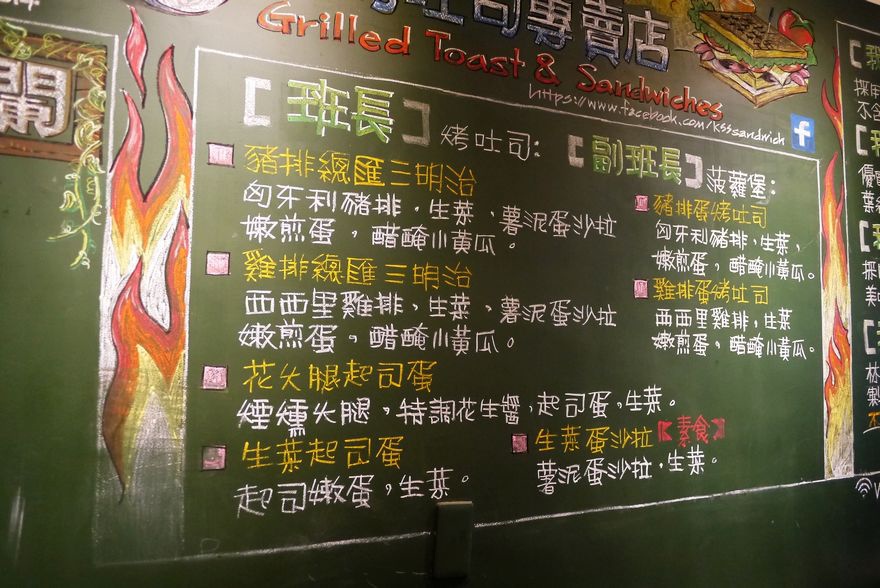 吐司專賣店
Grilled Toast & Sandwiches
https://www.facebook.com/ksssandwich
f
【班長】烤吐司:
豬排總匯三明治
匈牙利豬排,生菜、薯泥蛋沙拉
嫩煎蛋,醋醃小黃瓜。
雞排總匯三明治
西西里雞排,生菜、薯泥蛋沙拉
嫩煎蛋,醋醃小黃瓜。
花火腿起司蛋
煙燻火腿,特調花生醬,起司蛋,生菜。
生菜起司蛋
起司嫩蛋,生菜。
生菜蛋沙拉【素食】
薯泥蛋沙拉,生菜。
【副班長】菠蘿堡:
豬排蛋烤吐司
匈牙利豬排,生菜,
嫩煎蛋,醋醃小黃瓜。
雞排蛋烤吐司
西西里雞排,生菜
嫩煎蛋,醋醃小黃瓜。